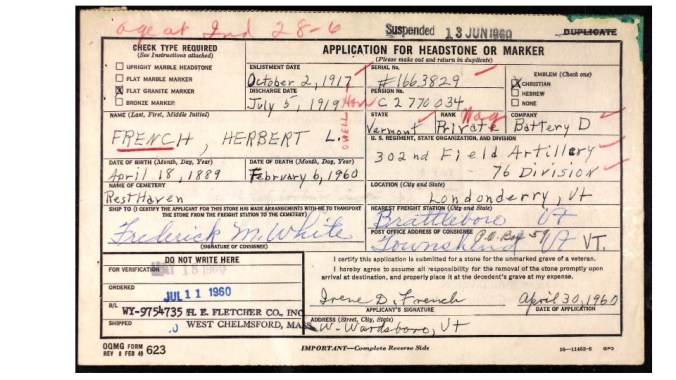 age at 2nd 28-6
Suspended 13 JUN 1960 DUPLICATE
CHECK TYPE REQUIRED
(See Instructions attached)
UPRIGHT MARBLE HEADSTONE
FLAT MARBLE MARKER
X FLAT GRANITE MARKER
BRONZE MARKER
APPLICATION FOR HEADSTONE OR MARKER
(Please make out and return in duplicate)
ENLISTMENT DATE
October 2, 1917
SERIAL No.
#1663829
DISCHARGE DATE
July 5, 1919 Hon
PENSION No.
C 2770034
EMBLEM (Check one)
X CHRISTIAN
HEBREW
NONE
NAME (Last, First, Middle Initial)
FRENCH, HERBERT L.
STATE
Vermont
RANK
Private
COMPANY
Battery D
U. S. REGIMENT, STATE ORGANIZATION, AND DIVISION
302nd Field Artillery
76 Division
DATE OF BIRTH (Month, Day, Year)
April 18, 1889
DATE OF DEATH (Month, Day, Year)
February 6, 1960
NAME OF CEMETERY
Rest Haven
LOCATION (City and State)
Londonderry, Vt
SHIP TO (I CERTIFY THE APPLICANT FOR THIS STONE HAS MADE ARRANGEMENTS WITH ME TO TRANSPORT
THE STONE FROM THE FREIGHT STATION TO THE CEMETERY)
Frederick M. White
(SIGNATURE OF CONSIGNEE)
NEAREST FREIGHT STATION (City and State)
Brattleboro VT
POST OFFICE ADDRESS OF CONSIGNEE
P.O. Box 59
Townshend VT VT.
DO NOT WRITE HERE
FOR VERIFICATION
MAY 18 1960
ORDERED
JUL 11 1960
B/L
WY-9754735 H. E. FLETCHER CO., INC.
SHIPPED
WEST CHELMSFORD, MASS.
I certify this application is submitted for a stone for the unmarked grave of a veteran.
I hereby agree to assume all responsibility for the removal of the stone promptly upon
arrival at destination, and properly place it at the decedent's grave at my expense.
Irene D. French
April 30, 1960
APPLICANT'S SIGNATURE
DATE OF APPLICATION
ADDRESS (Street, City, State)
W. Wardsboro, Vt
OQMG FORM
REV 8 FEB 49 623
IMPORTANT—Complete Reverse Side
16—11453-5 GPO